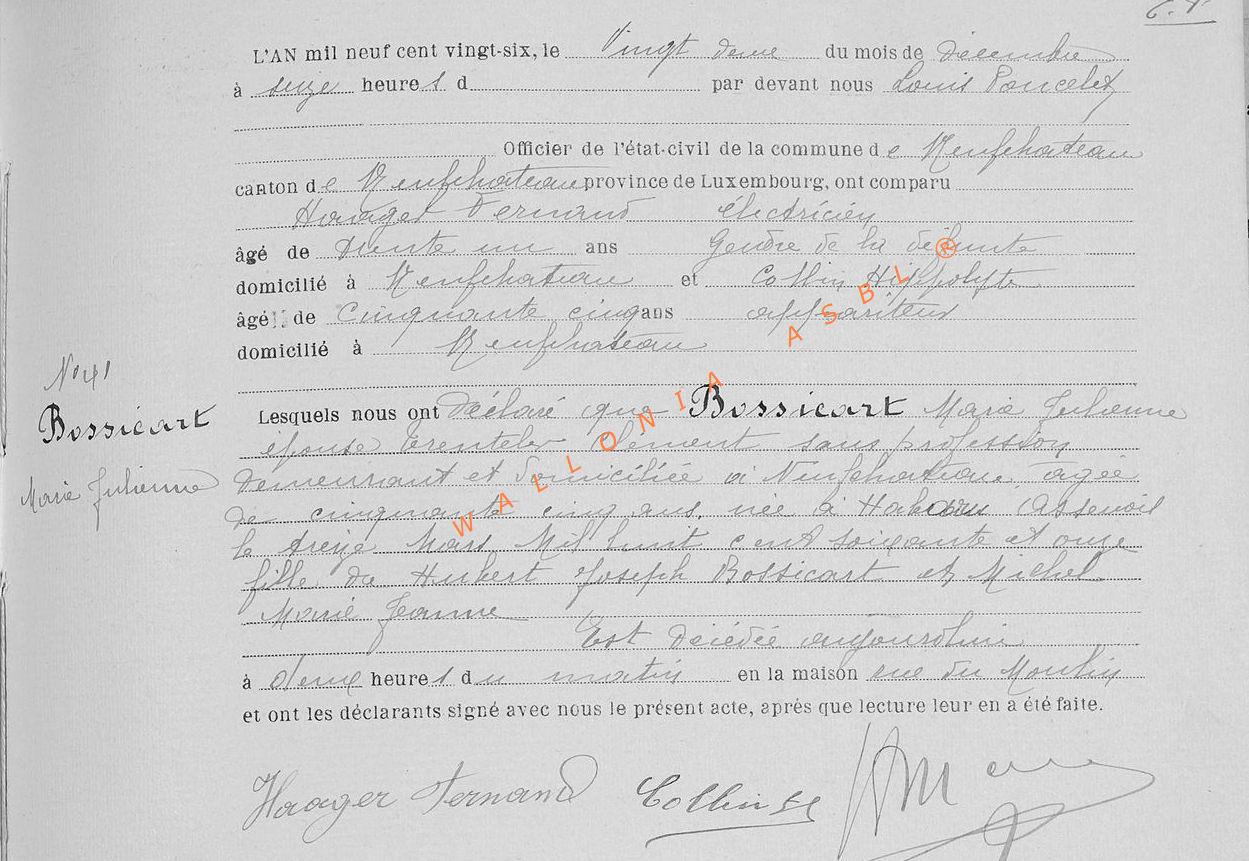 L'AN mil neuf cent vingt-six, le Vingt deux du mois de Décembre
à seize heures d par devant nous Louis Poncelet
Officier de l'état-civil de la commune de Neufchateau
canton de Neufchateau province de Luxembourg, ont comparu
Haager Fernand électricien
âgé de trente un ans Gendre de la défunte
domicilié à Neufchateau et Collin Hippolyte
âgé de Cinquante cinq ans appariteur
domicilié à Neufchateau
N° 41
Bossicart
Marie Julienne
Lesquels nous ont déclaré que Bossicart Marie Julienne
épouse Clément sans profession
demeurant et domiciliée à Neufchateau agée
de cinquante cinq ans, née à Assenois
le treize Mars Mil huit cent soixante et onze
fille de Hubert Joseph Bossicart et Michel
Marie Jeanne
Est décédée aujourd'hui
à deux heures du matin en la maison rue du Moulin
et ont les déclarants signé avec nous le présent acte, après que lecture leur en a été faite.
Haager Fernand Collin
WALLONIA ASBL ®